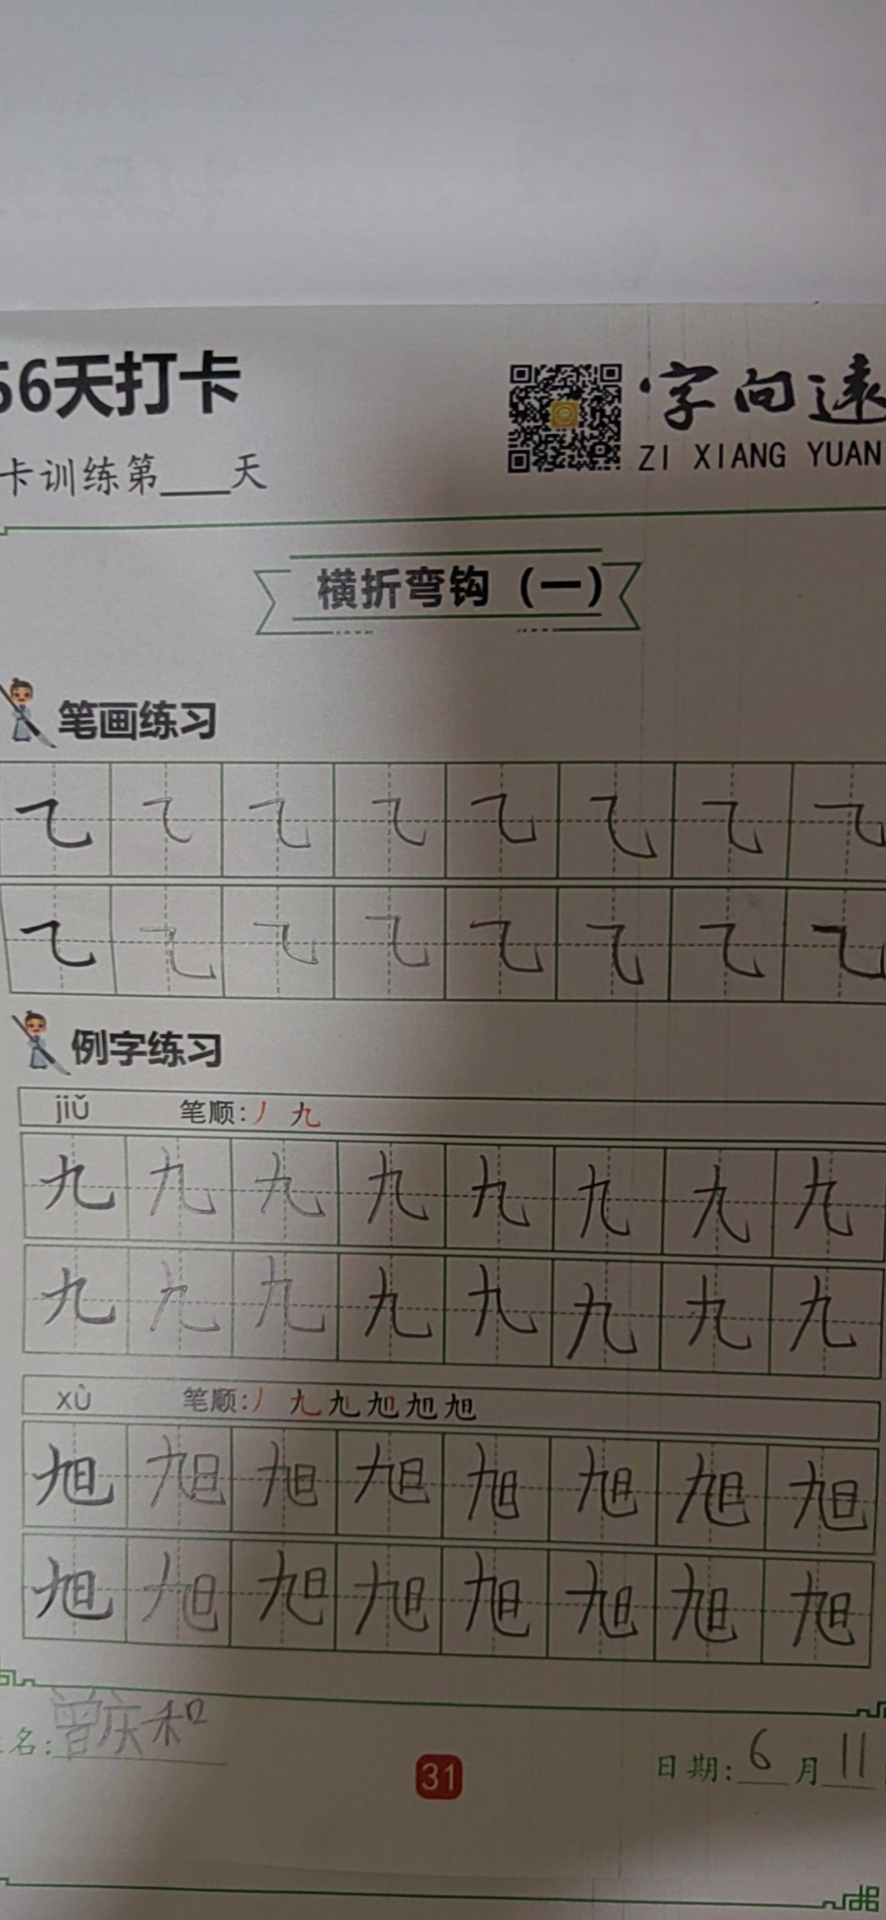 56天打卡
字向远
ZI XIANG YUAN
卡训练第___天
横折弯钩（一）
笔画练习
㇈ ㇈ ㇈ ㇈ ㇈ ㇈ ㇈ ㇈
㇈ ㇈ ㇈ ㇈ ㇈ ㇈ ㇈ ㇈
例字练习
jiǔ 笔顺:丿 九
九 九 九 九 九 九 九 九
九 九 九 九 九 九 九 九
xù 笔顺:丿 九 九 旭 旭 旭
旭 旭 旭 旭 旭 旭 旭 旭
旭 旭 旭 旭 旭 旭 旭 旭
名: 曾庆和
31
日期: 6 月 11